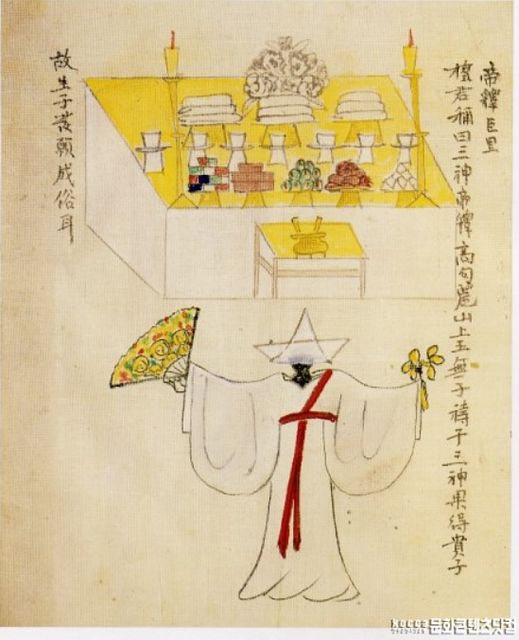 帝釋巨里
檀君稱曰三神帝釋高句麗山上王無子禱于三神果得貴子
故生子發願成俗耳
kocca 문화콘텐츠닷컴